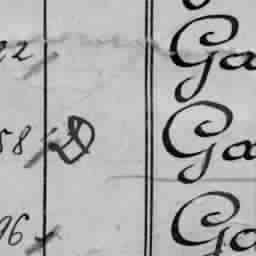 22 Ga
58 D Ga
96 Ga